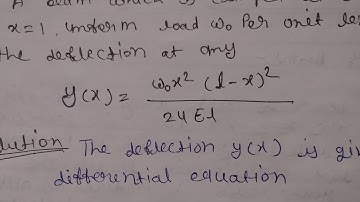 A beam which is
x=1, uniform load w₀ Per unit
the deflection at any
y(x) = w₀x² (l-x)² / 24 EI
lution The deflection y(x) is
differential equation